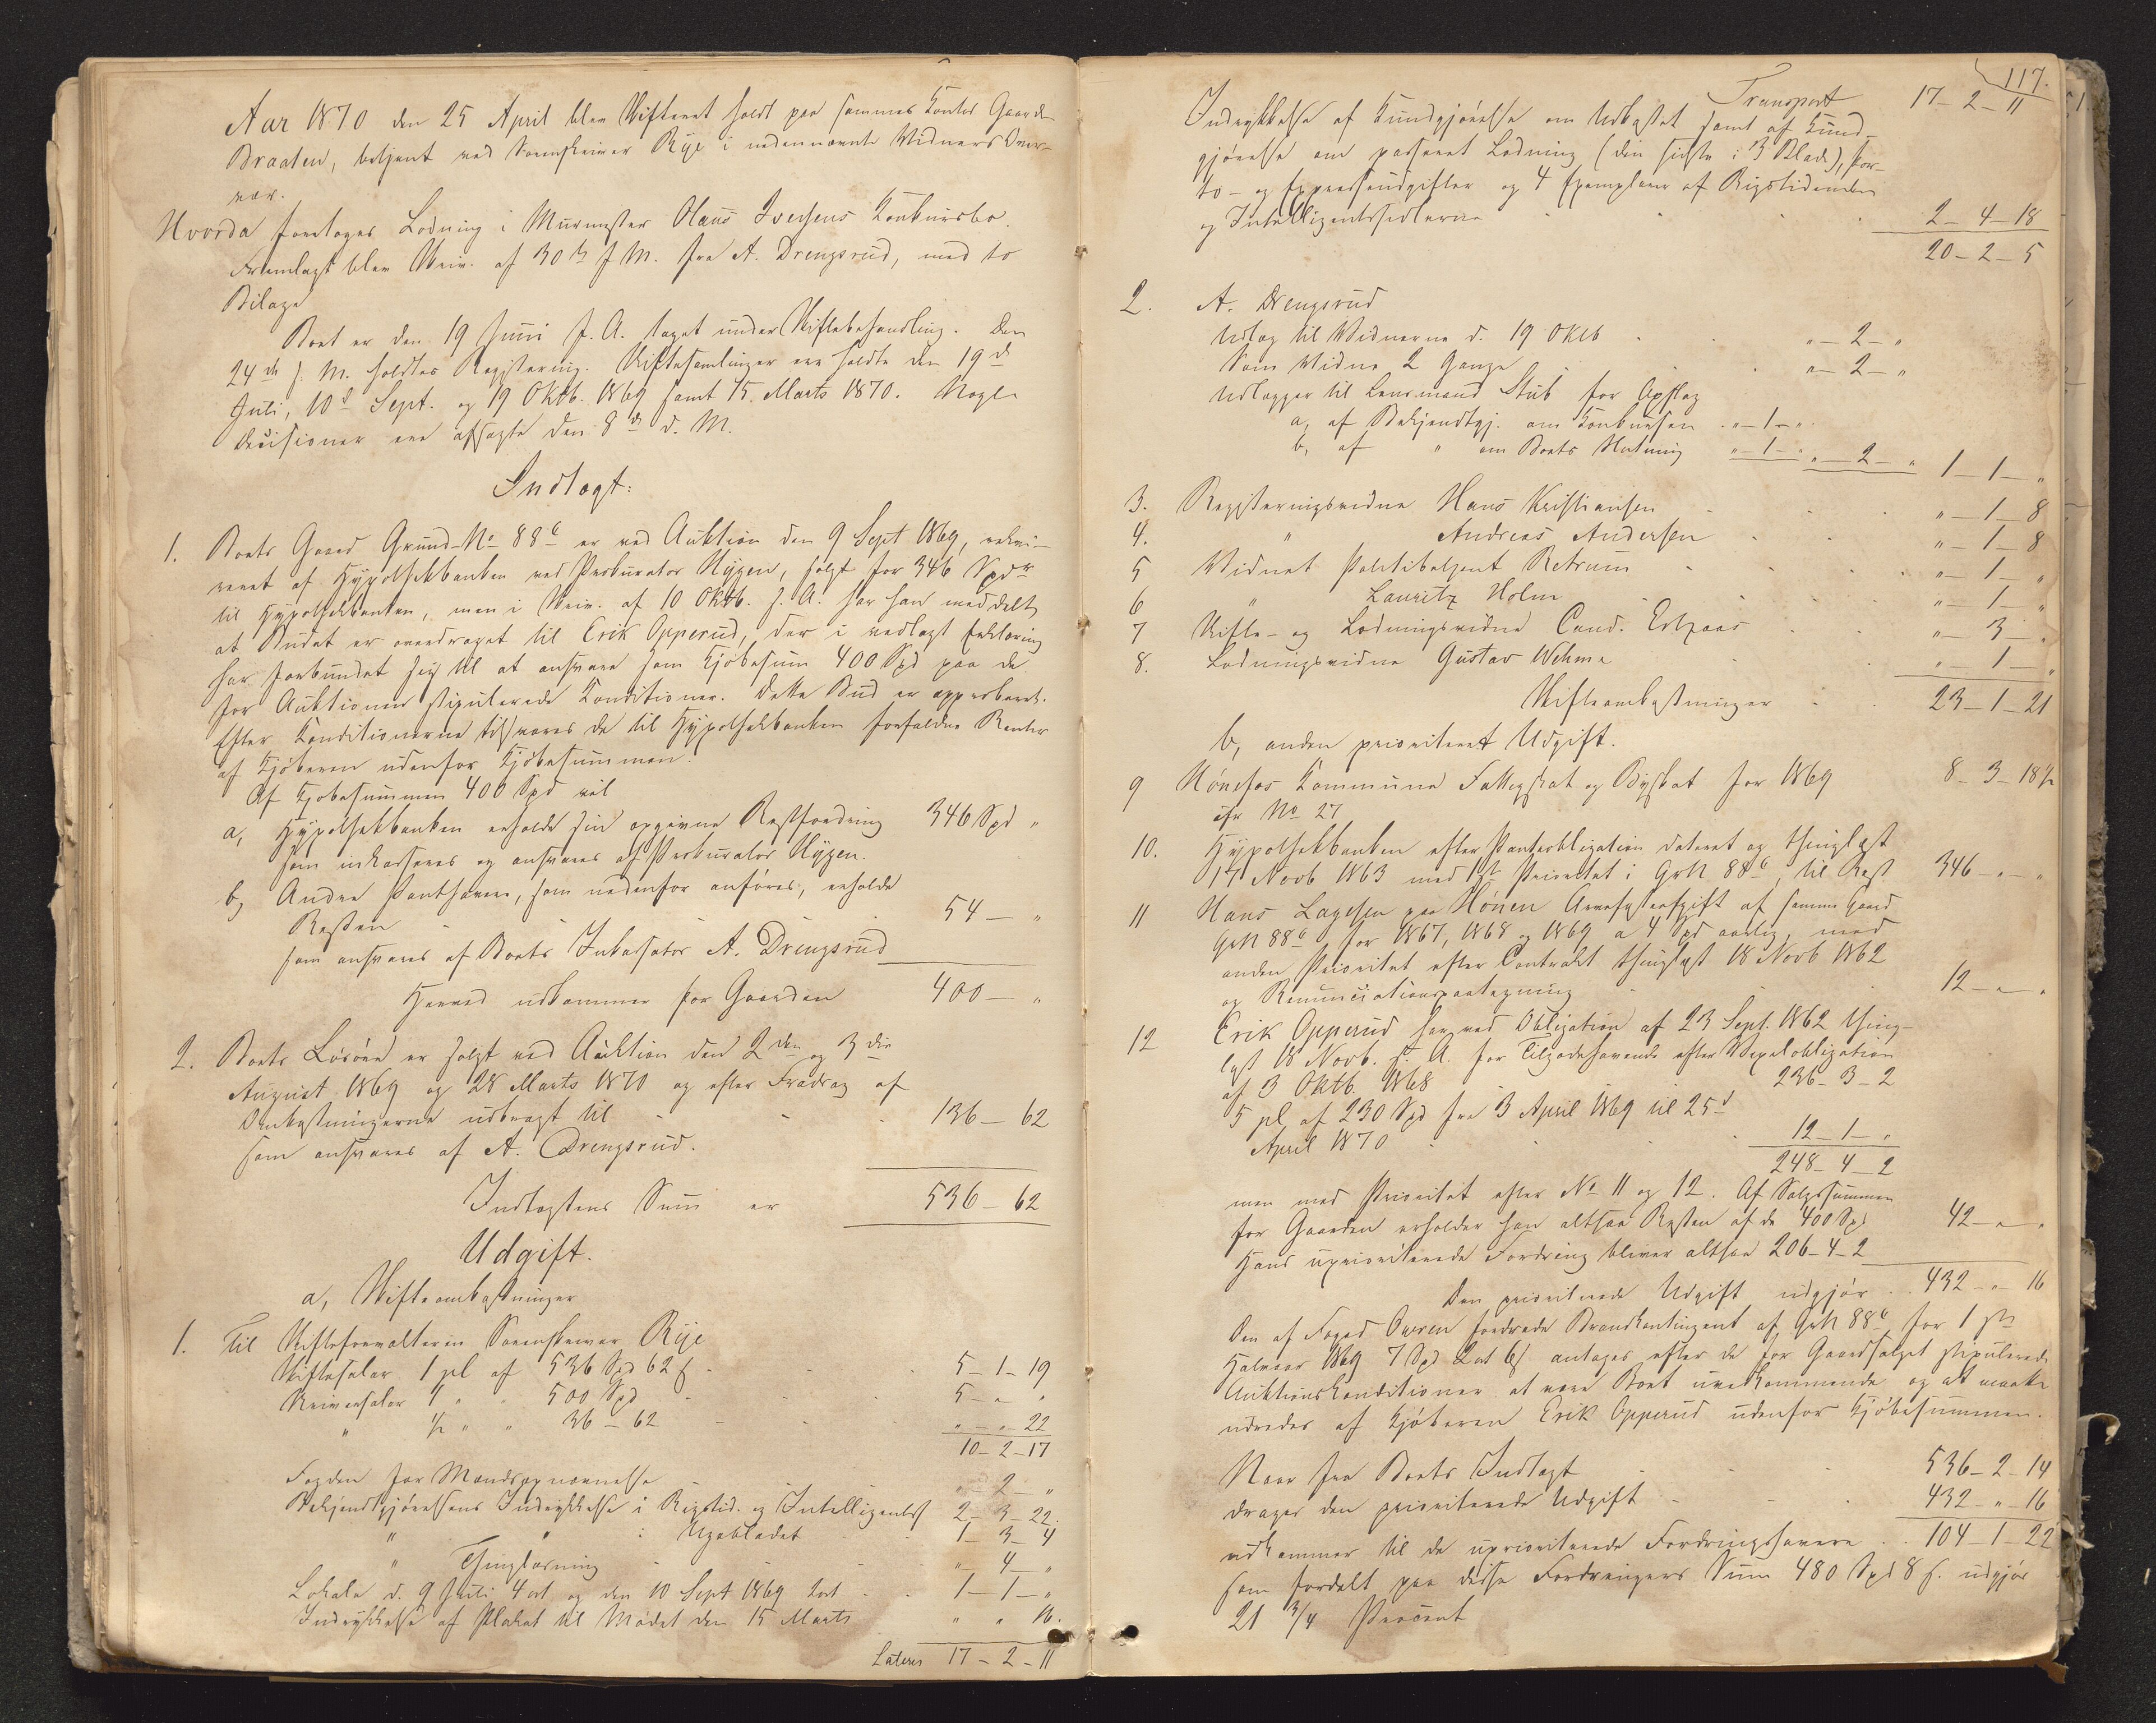 Aar 1870 den 25 April blev Skifteret holdt paa sammes Kontor Gaarden
Braaten, betjent ved Sorenskriver Rye i nedennævnte Vidners Over-
vær.
Hvorda foretoges Lodning i Murmester Olaus Iversens Konkursbo.
Fremlagt blev Skriv. af 30te f. M. fra A. Drengsrud, med to
Bilage
Boet er den 19 Juni f. A. taget under Skiftebehandling. Den
24de s. M. holdtes Registering. Skiftesamlinger ere holdte den 19de
Juli, 10de Sept. og 19 Oktb. 1869 samt 15. Marts 1870. Nogle
Decisioner ere afsagte den 8de d. M.
Indtægt:
1. Boets Gaard Grund-No 88c er ved Auktion den 9 Sept 1869, rekvi-
reret af Hypothekbanken ved Prokurator Hygen, solgt for 346 Spdr
til Hypothekbanken, men i Skriv. af 10 Oktb. f. A. har han meddelt
at Budet er overdraget til Erik Opperud, der i vedlagt Erklæring
har forbundet sig til at ansvare som Kjøbesum 400 Spd paa de
for Auktionen stipulerede Konditioner. Dette Bud er approberet.
Efter Konditionerne tilsvares de til Hypothekbanken forfaldne Renter
af Kjøberen udenfor Kjøbesummen.
Af Kjøbesummen 400 Spd vil
a, Hypothekbanken erholde sin opgivne Restfordring 346 Spd "
som indkasseres og ansvares af Prokurator Hygen.
b, Andre Panthavere, som nedenfor anføres, erholde
Resten 54 — "
som ansvares af Boets Inkassator A. Drengsrud
Herved udkommer for Gaarden 400 — "
2. Boets Løsøre er solgt ved Auktion den 2den og 3die
August 1869 og 28 Marts 1870 og efter Fradrag af
Omkostningerne udbragt til 136 — 62
som ansvares af A. Drengsrud.
Indtægtens Sum er 536 — 62
Udgift.
a, Skifteomkostninger
1. Til Skifteforvalteren Sorenskriver Rye
Skiftesalær 1 pCt af 536 Spd 62 s 5 — 1 — 19
Skriversalær 1 " " 500 Spd 5 — " "
" ½ " " 36 — 62 " — " — 22
10 — 2 — 17
Fogden for Mandsopnævnelse " — 2 — "
Bekjendtgjørelsens Indrykkelse i Rigstid. og Intelligents 2 — 3 — 22.
" " i Ugebladet 1 — 3 — 4
" Thinglæsning " — 4 — "
Lokale d. 9 Juli 4 ort og den 10 Sept 1869 2 ort 1 — 1 — "
Indrykkelse af Plakat til Mødet den 15 Marts " " 16.
Lateres 17 — 2 — 11
117.
Transport 17 — 2 — 11
Indrykkelse af Kundgjørelse om Udkastet samt af Kund-
gjørelse om passeret Lodning (den sidste i 3 Blade), Por-
to- og Expressudgifter og 4 Exemplarer af Rigstidenden
og Intelligentssedlerne 2 — 4 — 18
20 — 2 — 5
2. A. Drengsrud
Udlæg til Vidnerne d. 19 Oktb " — 2 — "
Som Vidne 2 Gange " — 2 — "
Udlægger til Lensmand Stub for Opslag
a, af Bekjendtgj. om Konkursen " — 1 — "
b, af " om Boets Slutning " — 1 — " " — 2 — " 1 — 1 — "
3. Registeringsvidne Hans Kristiansen " — 1 — 8
4. " Andreas Andersen " — 1 — 8
5 Vidnet Politibetjent Retrum " — 1 — "
6 " Lauritz Holm " — 1 — "
7 Skifte- og Lodningsvidne Cand. " — 3 — "
8. Lodningsvidne Gustav Wehme " — 1 — "
Skifteomkostninger 23 — 1 — 21
b, anden prioriteret Udgift.
9 Hønefos Kommune Fattigskat og Byskat for 1869 8 — 3 — 18½
cfr No 27
10. Hypothekbanken efter Pantobligation dateret og thinglæst
17 Novb 1863 med 1ste Prioritet i GrN 88c, til Rest 346 — " — "
11 Hans Lagesen paa Hønen Arvefæsteafgift af samme Gaard
GrN 88c for 1867, 1868 og 1869 a 4 Spd aarlig, med
anden Prioritet efter Contrakt thinglæst 18 Novb 1862
og Renunciationspaategning 12 — " — "
12 Erik Opperud har ved Obligation af 23 Sept. 1862 thing-
læst 18 Novb. s. A. for Tilgodehavende efter Vexelobligation
af 3 Oktb. 1868 236 — 3 — 2
5 pCt af 230 Spd fra 3 April 1869 til 25de
April 1870 12 — 1 — "
248 — 4 — 2
men med Prioritet efter No 11 og 12. Af Salgssummen
for Gaarden erholder han altsaa Resten af de 400 Spd 42 — " — "
Hans uprioriterede Fordring bliver altsaa 206 — 4 — 2
Den prioriterede Udgift udgjør 432 — " — 16
Den af Foged Owren fordrede Brandkontingent af GrN 88c for 1ste
Halvaar 1869 7 Spd 2 ort 6 s antages efter de for Gaardsalget stipulerede
Auktionskonditioner at være Boet uvedkommende og at maatte
udredes af Kjøberen Erik Opperud udenfor Kjøbesummen.
Naar fra Boets Indtægt 536 — 2 — 14
drages den prioriterede Udgift 432 — " — 16
udkommer til de uprioriterede Fordringshavere 104 — 1 — 22
som fordelt paa disse Fordringers Sum 480 Spd 8 s. udgjør
21 3/4 Procent